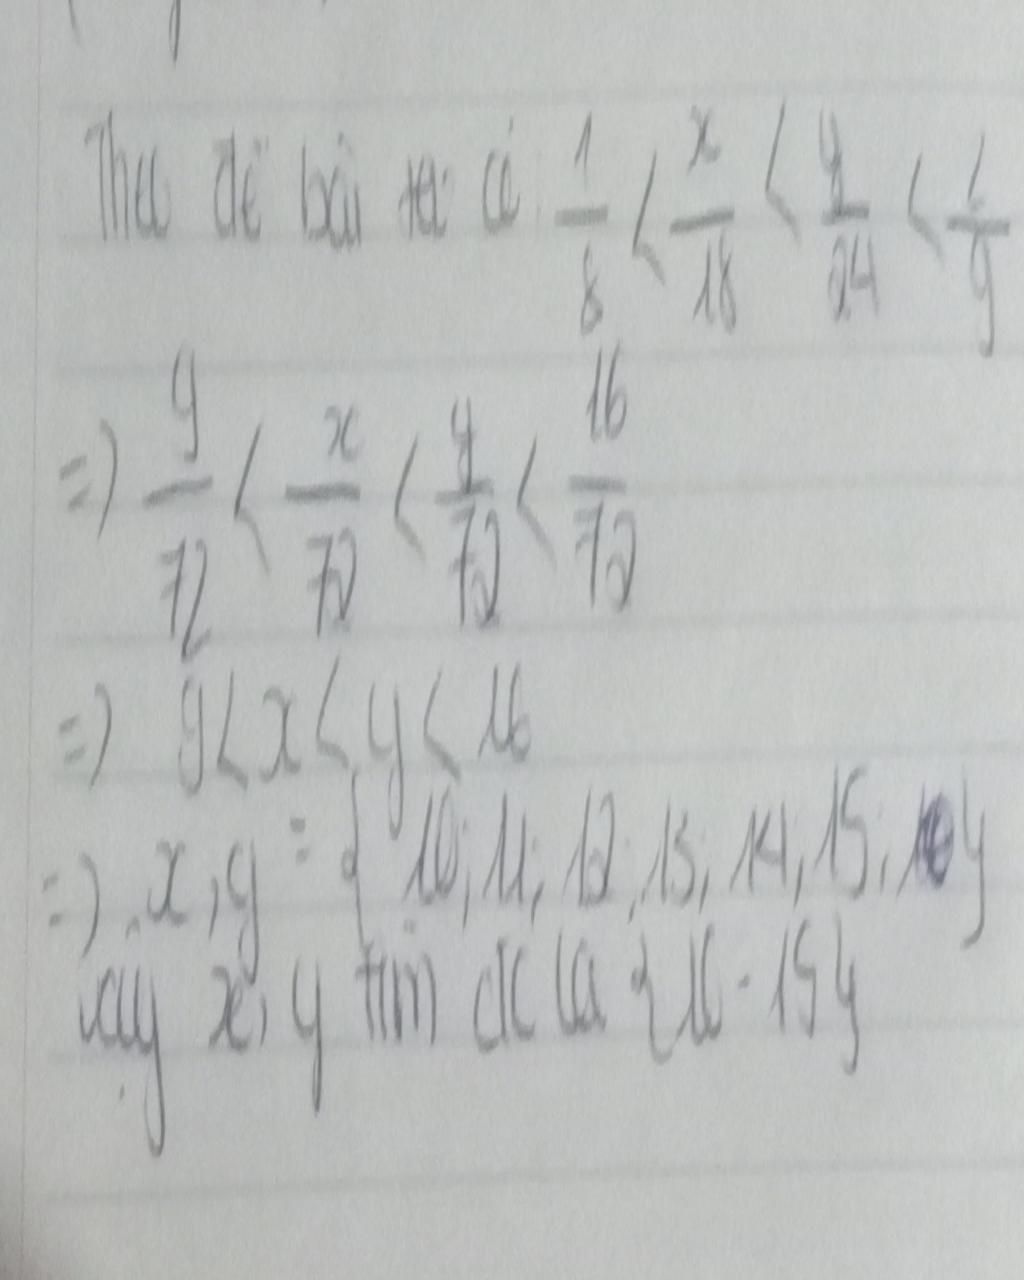 Theo đề bài ta có: 1/8 < x/18 < y/24 < 2/9
=> 9/72 < x/72 < y/72 < 16/72
=> 9 < x < y < 16
=> x, y = { 10; 11; 12; 13; 14; 15; }
vậy x, y tìm đc là { 10 - 15 }